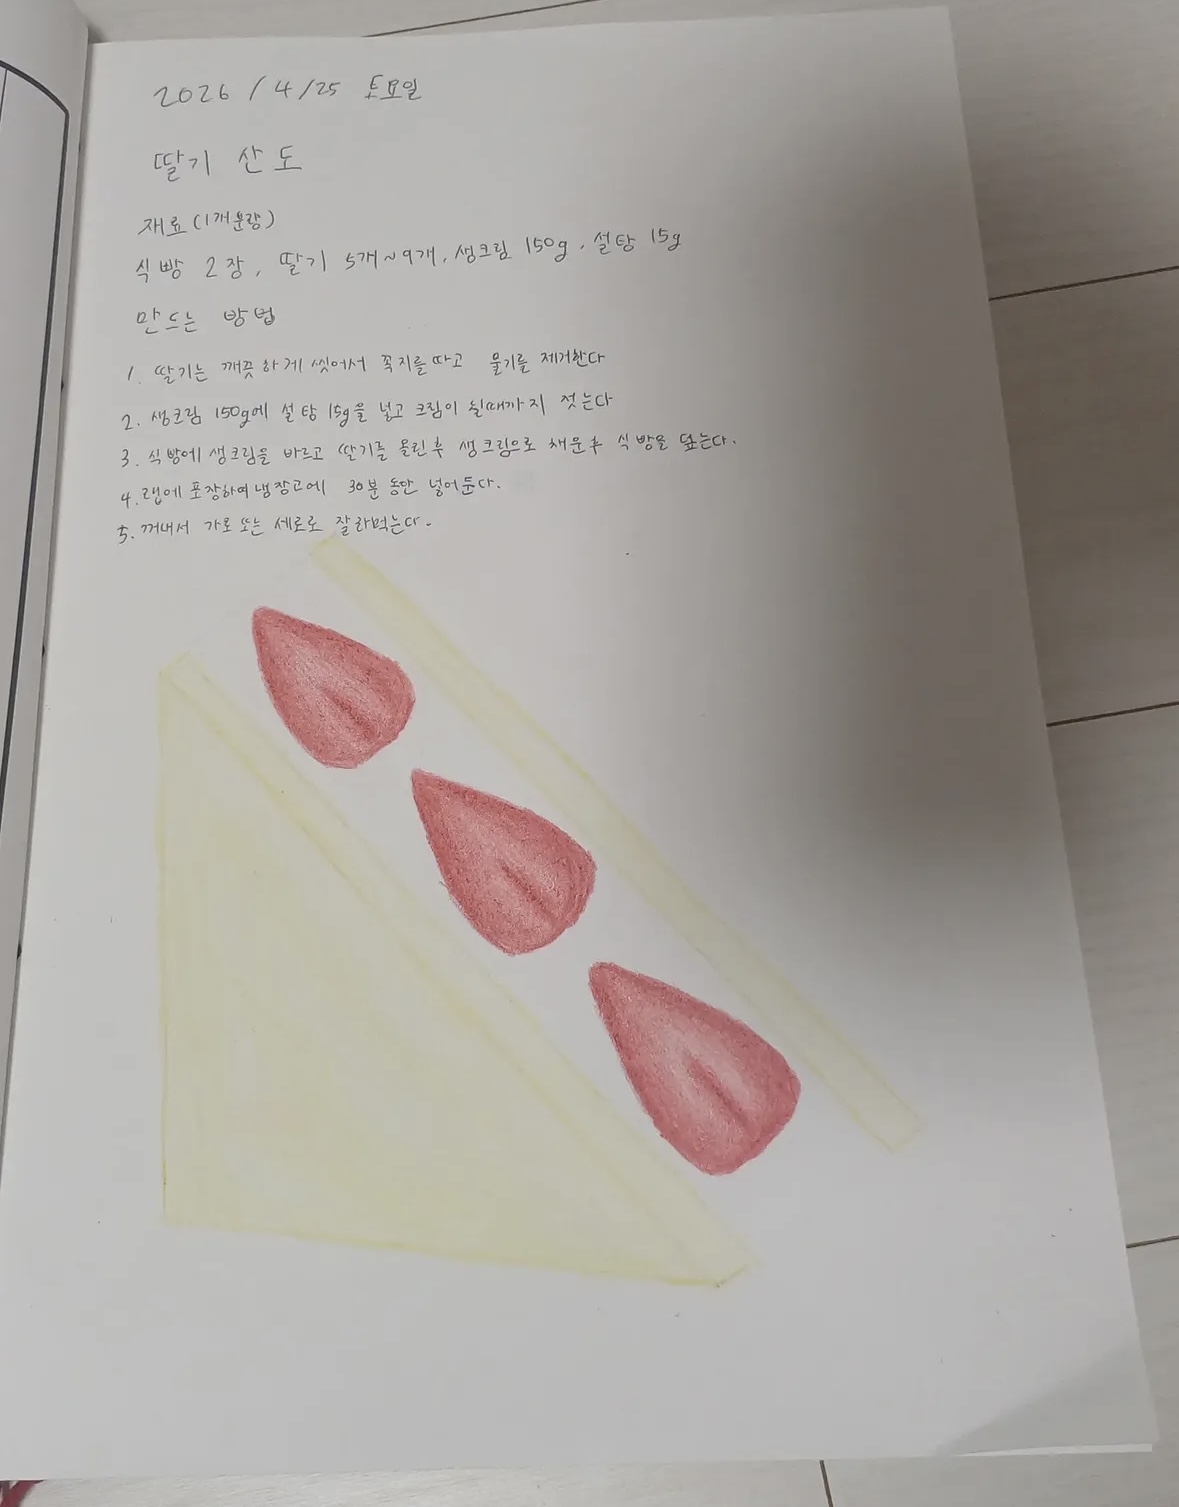 2026 / 4 / 25 토요일
딸기 산도
재료 (1개분량)
식빵 2장, 딸기 5개~9개, 생크림 150g, 설탕 15g
만드는 방법
1. 딸기는 깨끗하게 씻어서 꼭지를 따고 물기를 제거한다
2. 생크림 150g에 설탕 15g을 넣고 크림이 될때까지 젓는다
3. 식빵에 생크림을 바르고 딸기를 올린후 생크림으로 채운후 식빵을 덮는다.
4. 랩에 포장하여 냉장고에 30분 동안 넣어둔다.
5. 꺼내서 가로 또는 세로로 잘라먹는다.